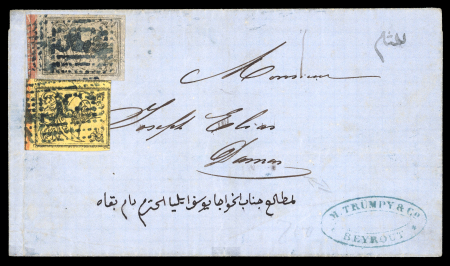 Monsieur
Joseph Elias
Damas
لمطالع جناب الخواجا يوسف ايليا المحترم دام بقاه
M. TRUMPY & Co
BEYROUT